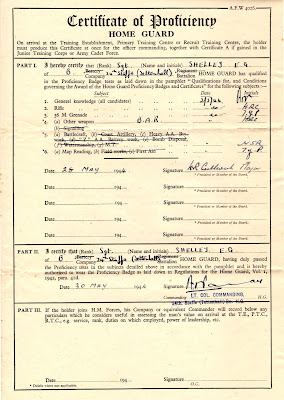 A.F.W 4026.
Certificate of Proficiency
HOME GUARD
On arrival at the Training Establishment, Primary Training Centre or Recruit Training Centre, the holder
must produce this Certificate at once for the officer commanding, together with Certificate A if gained in
the Junior Training Corps or Army Cadet Force.
PART I. I hereby certify that (Rank) Sgt. (Name and initials) SHELLEY E.G.
of B Battery Company 24th Staffs (Tettenhall) Regiment Battalion HOME GUARD, has qualified
in the Proficiency Badge tests as laid down in the pamphlet "Qualifications for, and Conditions
governing the Award of the Home Guard Proficiency Badges and Certificates" for the following subjects:—
Subject Date Initials
1. General knowledge (all candidates)
2. Rifle
3. 36 M. Grenade
*4. (a) Other weapon B.A.R.
(b) Signalling
*5. (a) Battlecraft, (b) Coast Artillery, (c) Heavy A.A. Bty.
work, (e) Bomb Disposal,
(f) Watermanship, (g) M.T.
*6. (a) Map Reading, (b) Field works, (c) First Aid
Date 28 MAY 194 Signature Major
* President or Member of the Board.
Date 194 Signature
* President or Member of the Board.
Date 194 Signature
* President or Member of the Board.
Date 194 Signature
* President or Member of the Board.
PART II. I certify that (Rank) Sgt. (Name and initials) SHELLEY E.G.
of B Battery Company 24th Staffs (Tettenhall) Regiment Battalion HOME GUARD, having duly passed
the Proficiency tests in the subjects detailed above in accordance with the pamphlet and is hereby
authorised to wear the Proficiency Badge as laid down in Regulations for the Home Guard, Vol. 1,
1942, para. 41d.
Date 30 MAY 194 Signature
Commanding LT. COL. COMMANDING, H.G.
24th Staffs (Tettenhall) Bn. H.G.
PART III. If the holder joins H.M. Forces, his Company or equivalent Commander will record below any
particulars which he considers useful in assessing the man's value on arrival at the T.E., P.T.C.,
R.T.C., e.g. service, rank, duties on which employed, power of leadership, etc.
Date 194 Signature
O.C.
* Delete where not applicable.